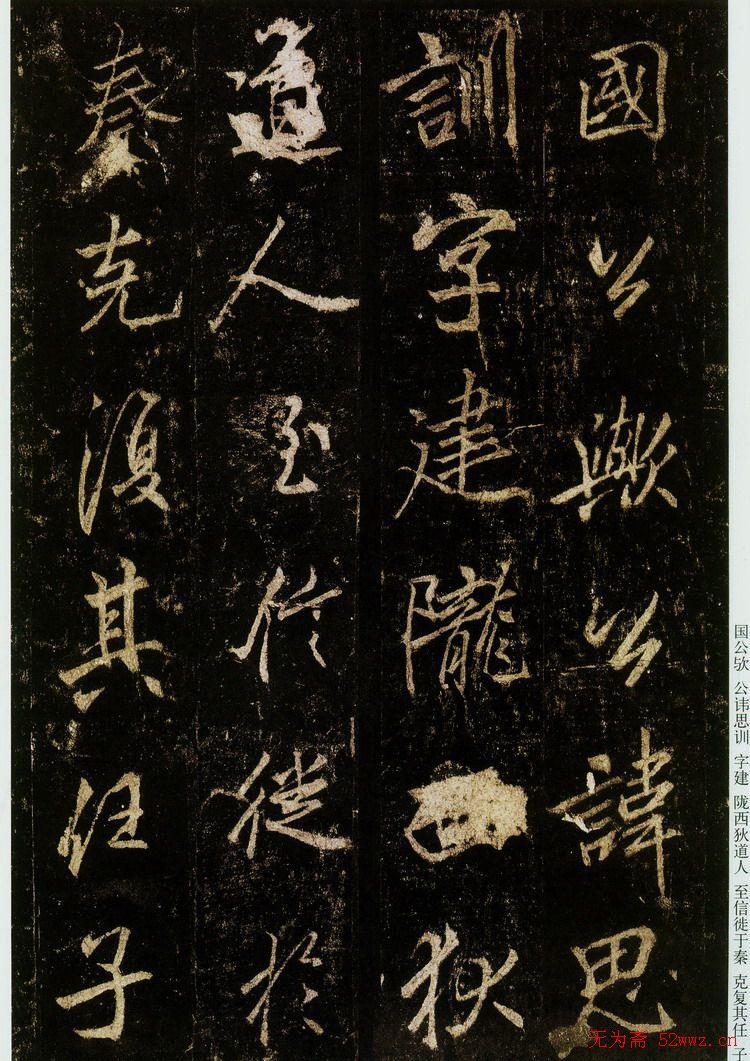 國公歟公諱思
訓字建隴西狄
道人至信徙於
秦克復其任子
国公欤 公讳思训 字建 陇西狄道人 至信徙于秦 克复其任 子
无为斋 52wwz.cn